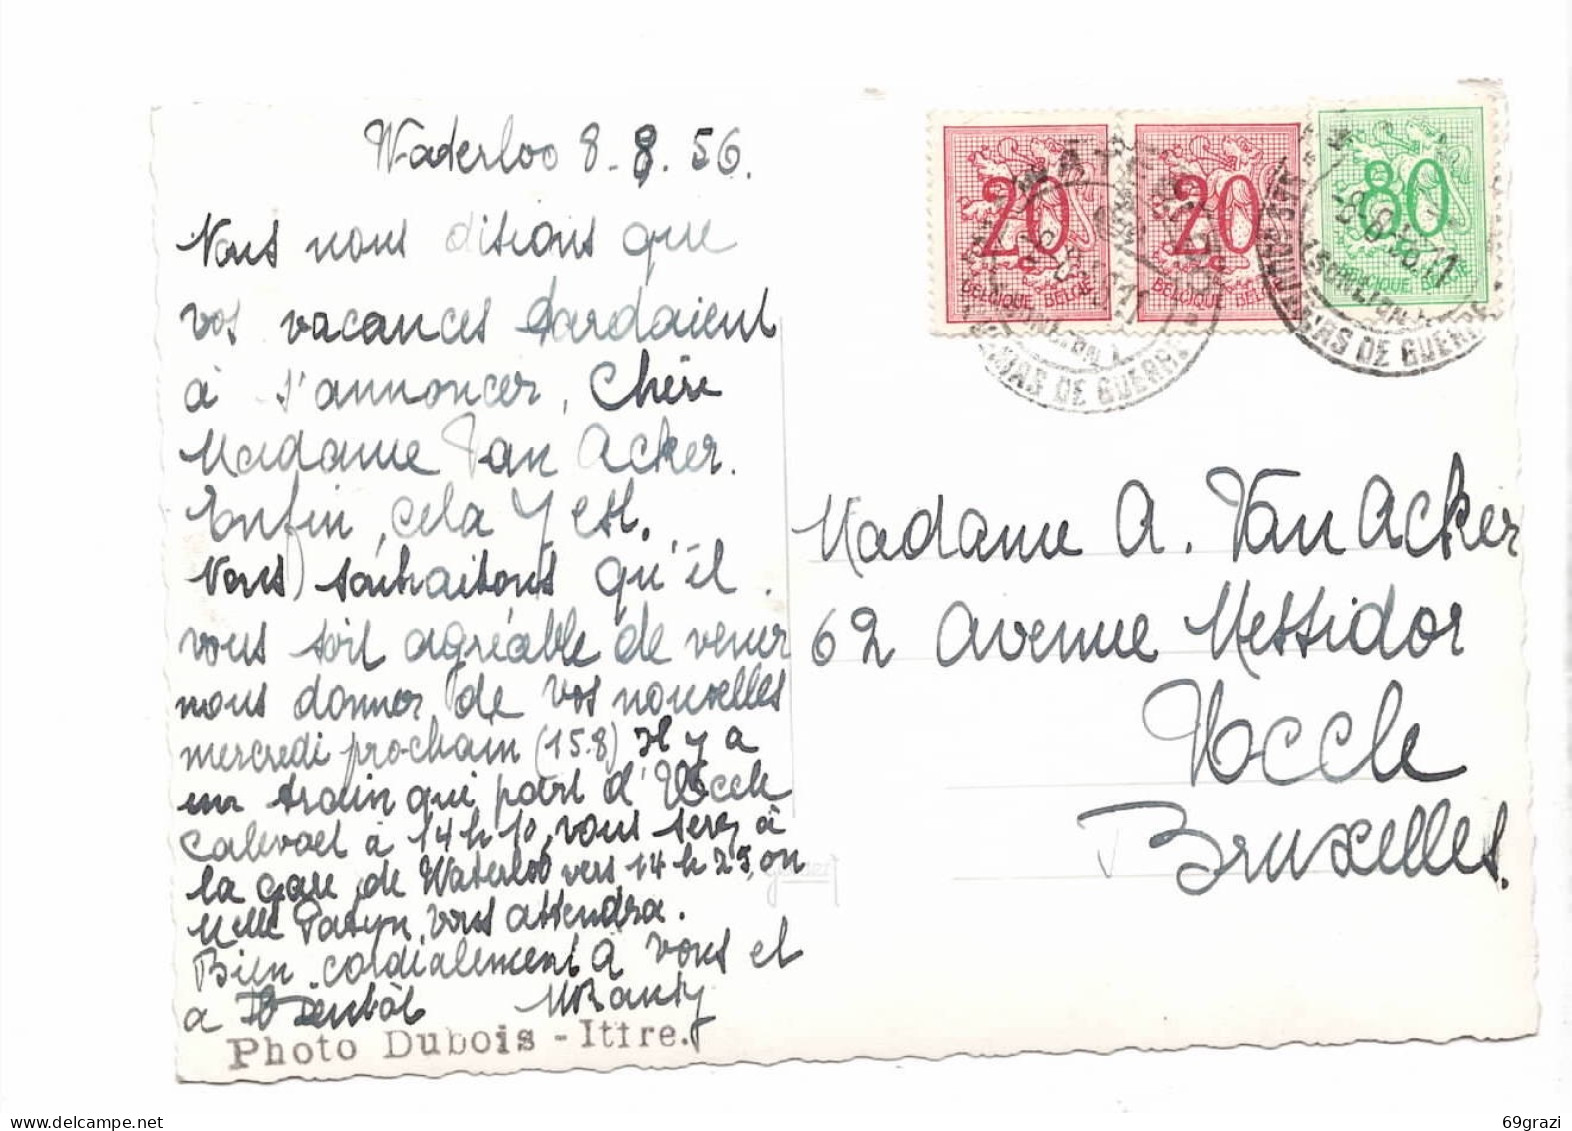 Waterloo 8-8.56.
Nous nous disions que
vos vacances tardaient
à s'annoncer, Chère
Madame Van Acker.
Enfin, cela y est.
Nous souhaitons qu'il
vous soit agréable de venir
nous donner de vos nouvelles
mercredi prochain (15.8) Il y a
un train qui part d'Uccle
Calevoet à 14 h 10, vous serez à
la gare de Waterloo vers 14 h 25, on
Melle Patyn, vous attendra.
Bien cordialement à vous et
à bientôt
Photo Dubois - Ittre.
20
BELGIQUE BELGIE
20
BELGIQUE BELGIE
80
BELGIQUE
DE GUERRE
DE GUERRE
Madame A. Van Acker
62 Avenue Messidor
Uccle
Bruxelles.
Gevaert
www.delcampe.net
69grazi